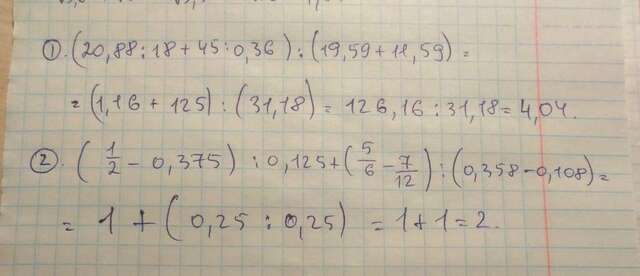 ①. (20,88:18+45:0,36):(19,59+11,59)=
= (1,16 + 125) : (31,18) = 126,16 : 31,18 = 4,04.
②. (1/2 - 0,375) : 0,125 + (5/6 - 7/12) : (0,358-0,108) =
= 1 + (0,25 : 0,25) = 1+1=2.